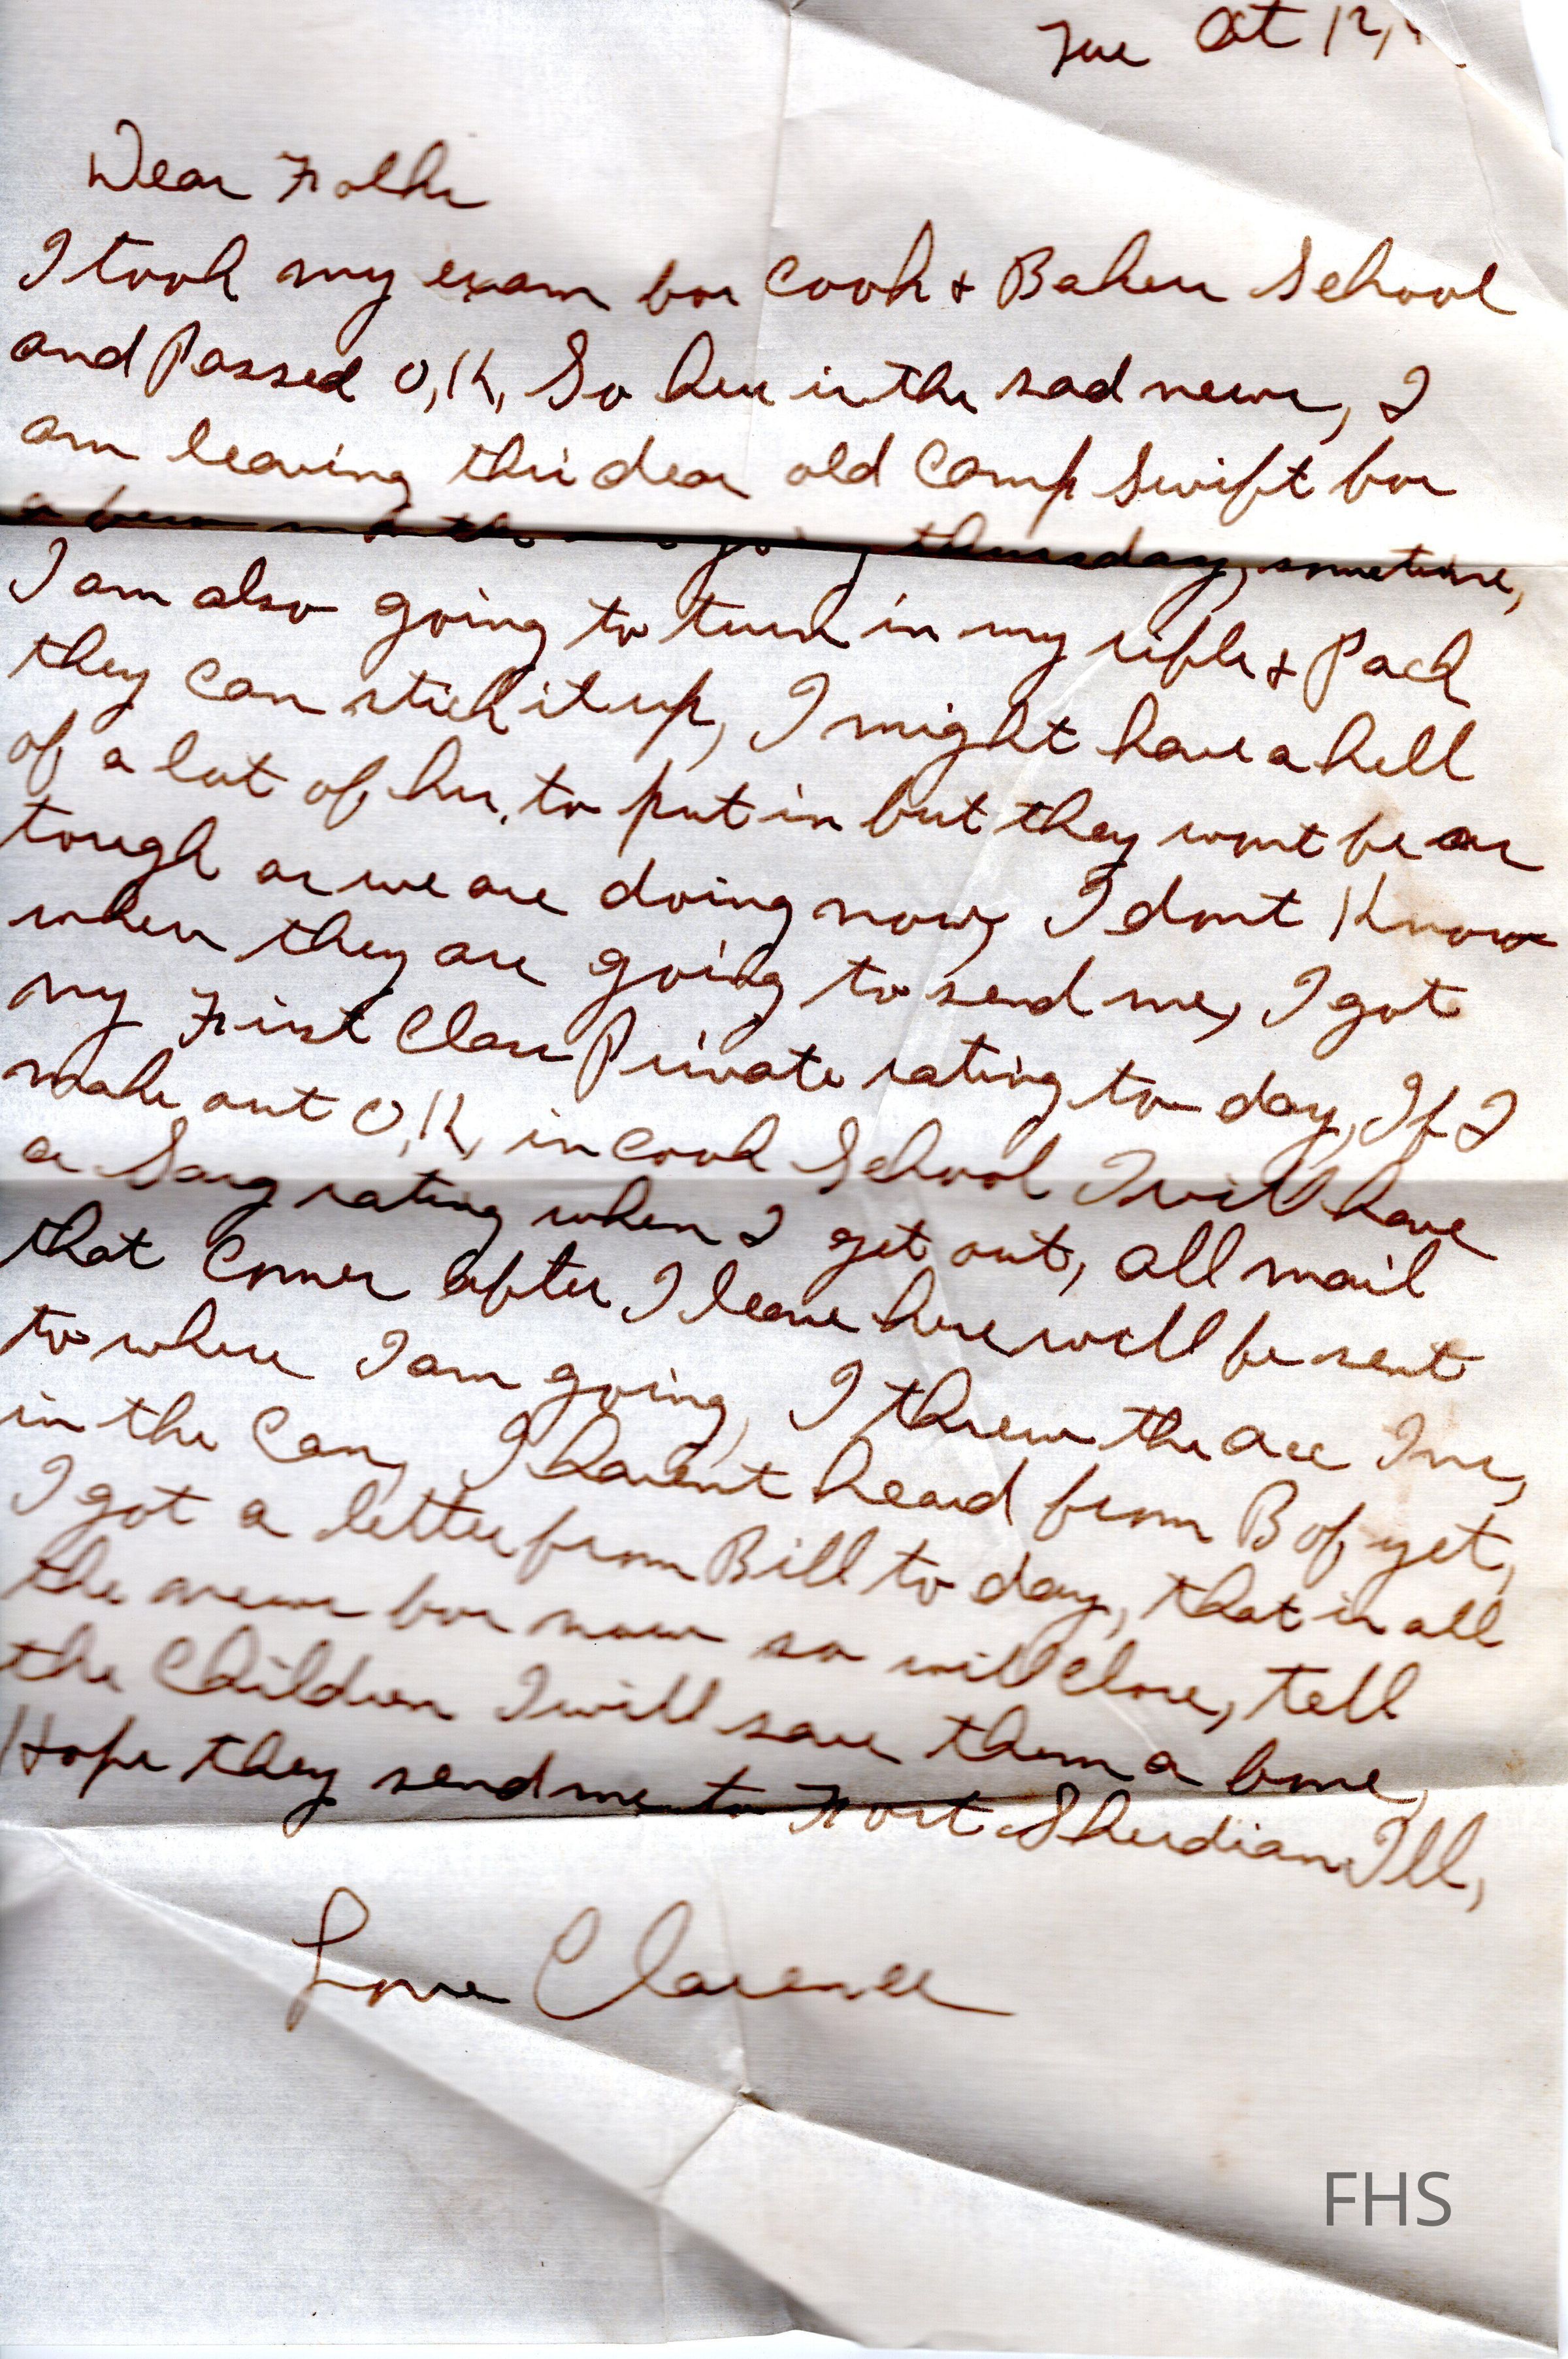 Tue Oct 12,
Dear Folks
I took my exam for Cook & Bakers School
and Passed O,K, So here is the sad news, I
am leaving this dear old Camp Swift for
a few months thursday, sometime,
I am also going to turn in my rifle & Pack
they can stick it up, I might have a hell
of a lot of hrs. to put in but they wont be as
tough as we are doing now, I dont Know
when they are going to send me, I got
my First Class Private rating to day, If I
make out O,K, in Cook School I will have
a Sarg rating when I get out, all mail
that Comes after I leave here will be sent
to where I am going, I threw the Ins,
in the Can, I havent heard from B of yet,
I got a letter from Bill to day, that is all
the news for now so will Close, tell
the Children I will save them a bone,
Hope they send me to Fort Sherdian Ill,
Love Clarence
FHS